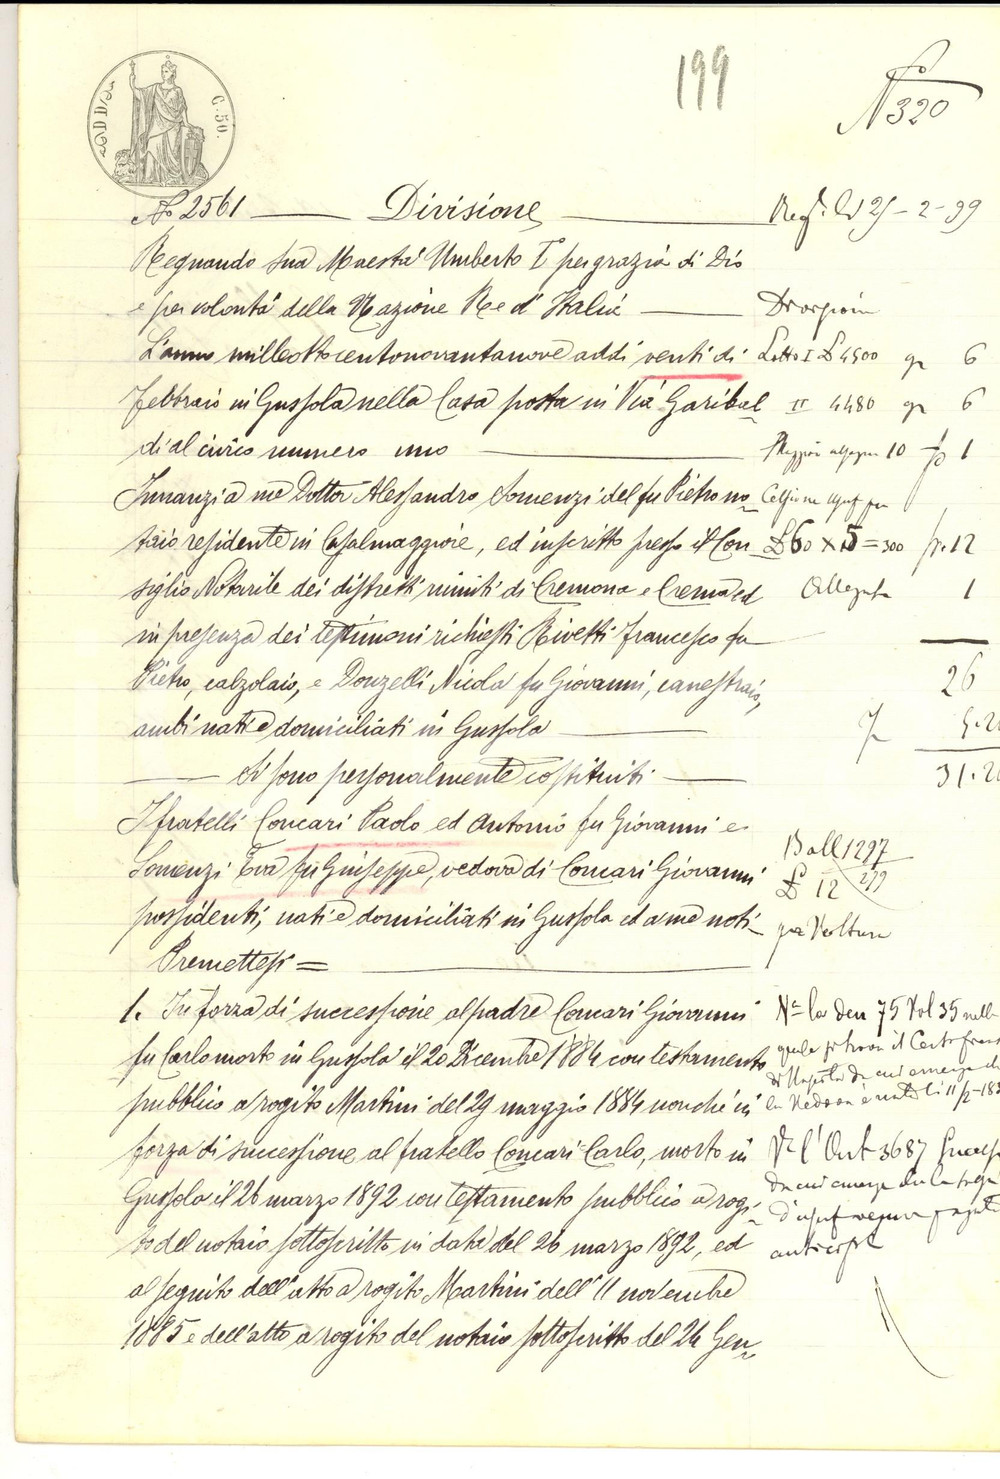 199
N 320
C. 50.
No 2561 Divisione
Regnando Sua Maestà Umberto I per grazia di Dio
e per volontà della Nazione Re d'Italia
L'anno milleottocentonovantanove addì venti di
Febbraio in Gussola nella Casa posta in Via Garibal
di al civico numero uno
Innanzi a me Dottor Alessandro Somenzi del fu Pietro no
taio residente in Casalmaggiore, ed inscritto presso il Con
siglio Notarile dei distretti riuniti di Cremona e Crema ed
in presenza dei testimoni richiesti Rivetti Francesco fu
Pietro, calzolaio, e Donzelli Nicola fu Giovanni, canestraio,
ambi nati e domiciliati in Gussola
si sono personalmente costituiti
I fratelli Concari Paolo ed Antonio fu Giovanni e
Somenzi Eva fu Giuseppe, vedova di Concari Giovanni
possidenti, nati e domiciliati in Gussola ed a me noti
Premettesi =
1. In forza di successione al padre Concari Giovanni
fu Carlo morto in Gussola il 20 Dicembre 1884 con testamento
pubblico a rogito Martini del 29 maggio 1884 nonché in
forza di successione al fratello Concari Carlo, morto in
Gussola il 26 marzo 1892 con testamento pubblico a rogi
to del notaio sottoscritto in data del 26 marzo 1892, ed
al seguito dell'atto a rogito Martini dell'11 novembre
1885 e dell'atto a rogito del notaio sottoscritto del 24 Gen
Lotto I £ 4500 6
II 4480 6
10 1
£ 60 x 5 = 300 12
Allegato 1
26
31.20
Boll 1297
£ 12
per Volture